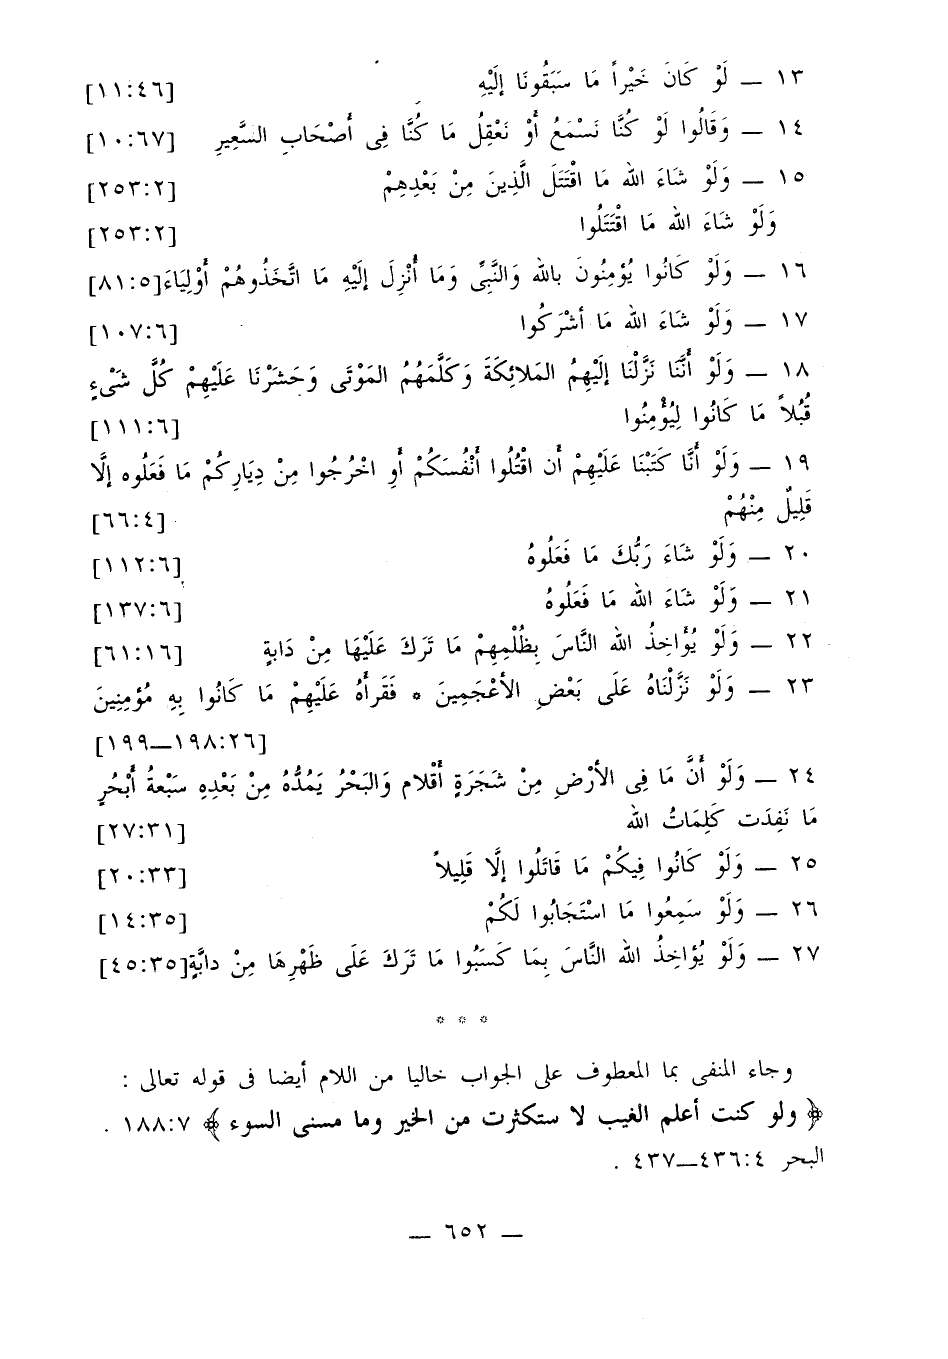 ١٣ — لَوْ كَانَ خَيْراً مَا سَبَقُونَا إلَيْهِ [١١:٤٦]
١٤ — وَقَالُوا لَوْ كُنَّا نَسْمَعُ أوْ نَعْقِلُ مَا كُنَّا فِى أَصْحَابِ السَّعِيرِ [١٠:٦٧]
١٥ — وَلَوْ شَاءَ الله مَا اقْتَتَلَ الَّذِينَ مِنْ بَعْدِهِمْ [٢٥٣:٢]
وَلَوْ شَاءَ الله مَا اقْتَتَلُوا [٢٥٣:٢]
١٦ — وَلَوْ كَانُوا يُوْمِنُونَ بالله وَالنَّبِىِّ وَمَا أُنْزِلَ إلَيْهِ مَا اتَّخَذُوهُمْ أَوْلِيَاءَ [٨١:٥]
١٧ — وَلَوْ شَاءَ الله مَا أشْرَكُوا [١٠٧:٦]
١٨ — وَلَوْ أَنَّنَا نَزَّلْنَا إلَيْهِمُ المَلائِكَةَ وَكَلَّمَهُمُ المَوْتَى وَحَشَرْنَا عَلَيْهِمْ كُلَّ شَىْءٍ
قُبُلاً مَا كَانُوا لِيُؤْمِنُوا [١١١:٦]
١٩ — وَلَوْ أَنَّا كَتَبْنَا عَلَيْهِمْ أَن اقْتُلُوا أَنْفُسَكُمْ أَوِ اخْرُجُوا مِنْ دِيَارِكُمْ مَا فَعَلُوه إلَّا
قَلِيلٌ مِنْهُمْ [٦٦:٤]
٢٠ — وَلَوْ شَاءَ رَبُّكَ مَا فَعَلُوهُ [١١٢:٦]
٢١ — وَلَوْ شَاءَ الله مَا فَعَلُوهُ [١٣٧:٦]
٢٢ — وَلَوْ يُؤَاخِذُ الله النَّاسَ بِظُلْمِهِمْ مَا تَرَكَ عَلَيْهَا مِنْ دَابةٍ [٦١:١٦]
٢٣ — وَلَوْ نَزَّلْنَاهُ عَلَى بَعْضِ الأعْجَمِينَ * فَقَرأَهُ عَلَيْهِمْ مَا كَانُوا بِهِ مُؤمِنِينَ
[١٩٨:٢٦—١٩٩]
٢٤ — وَلَوْ أَنَّ مَا فِى الأرْضِ مِنْ شَجَرَةٍ أقْلام وَالبَحْرُ يَمُدُّهُ مِنْ بَعْدِهِ سَبْعةُ أَبْحُرٍ
مَا نَفِدَت كَلِمَاتُ الله [٢٧:٣١]
٢٥ — وَلَوْ كَانُوا فِيكُمْ مَا قَاتَلُوا إلَّا قَلِيلاً [٢٠:٣٣]
٢٦ — وَلَوْ سَمِعُوا مَا اسْتَجَابُوا لَكُمْ [١٤:٣٥]
٢٧ — وَلَوْ يُؤاخِذُ الله النَّاسَ بِمَا كَسَبُوا مَا تَرَكَ عَلَى ظَهْرِهَا مِنْ دابَّةٍ [٤٥:٣٥]
* * *
وجاء المنفى بما المعطوف على الجواب خاليا من اللام أيضا فى قوله تعالى :
﴿ ولو كنت أعلم الغيب لا ستكثرت من الخير وما مسنى السوء ﴾ ١٨٨:٧ .
البحر ٤٣٦:٤—٤٣٧ .
— ٦٥٢ —